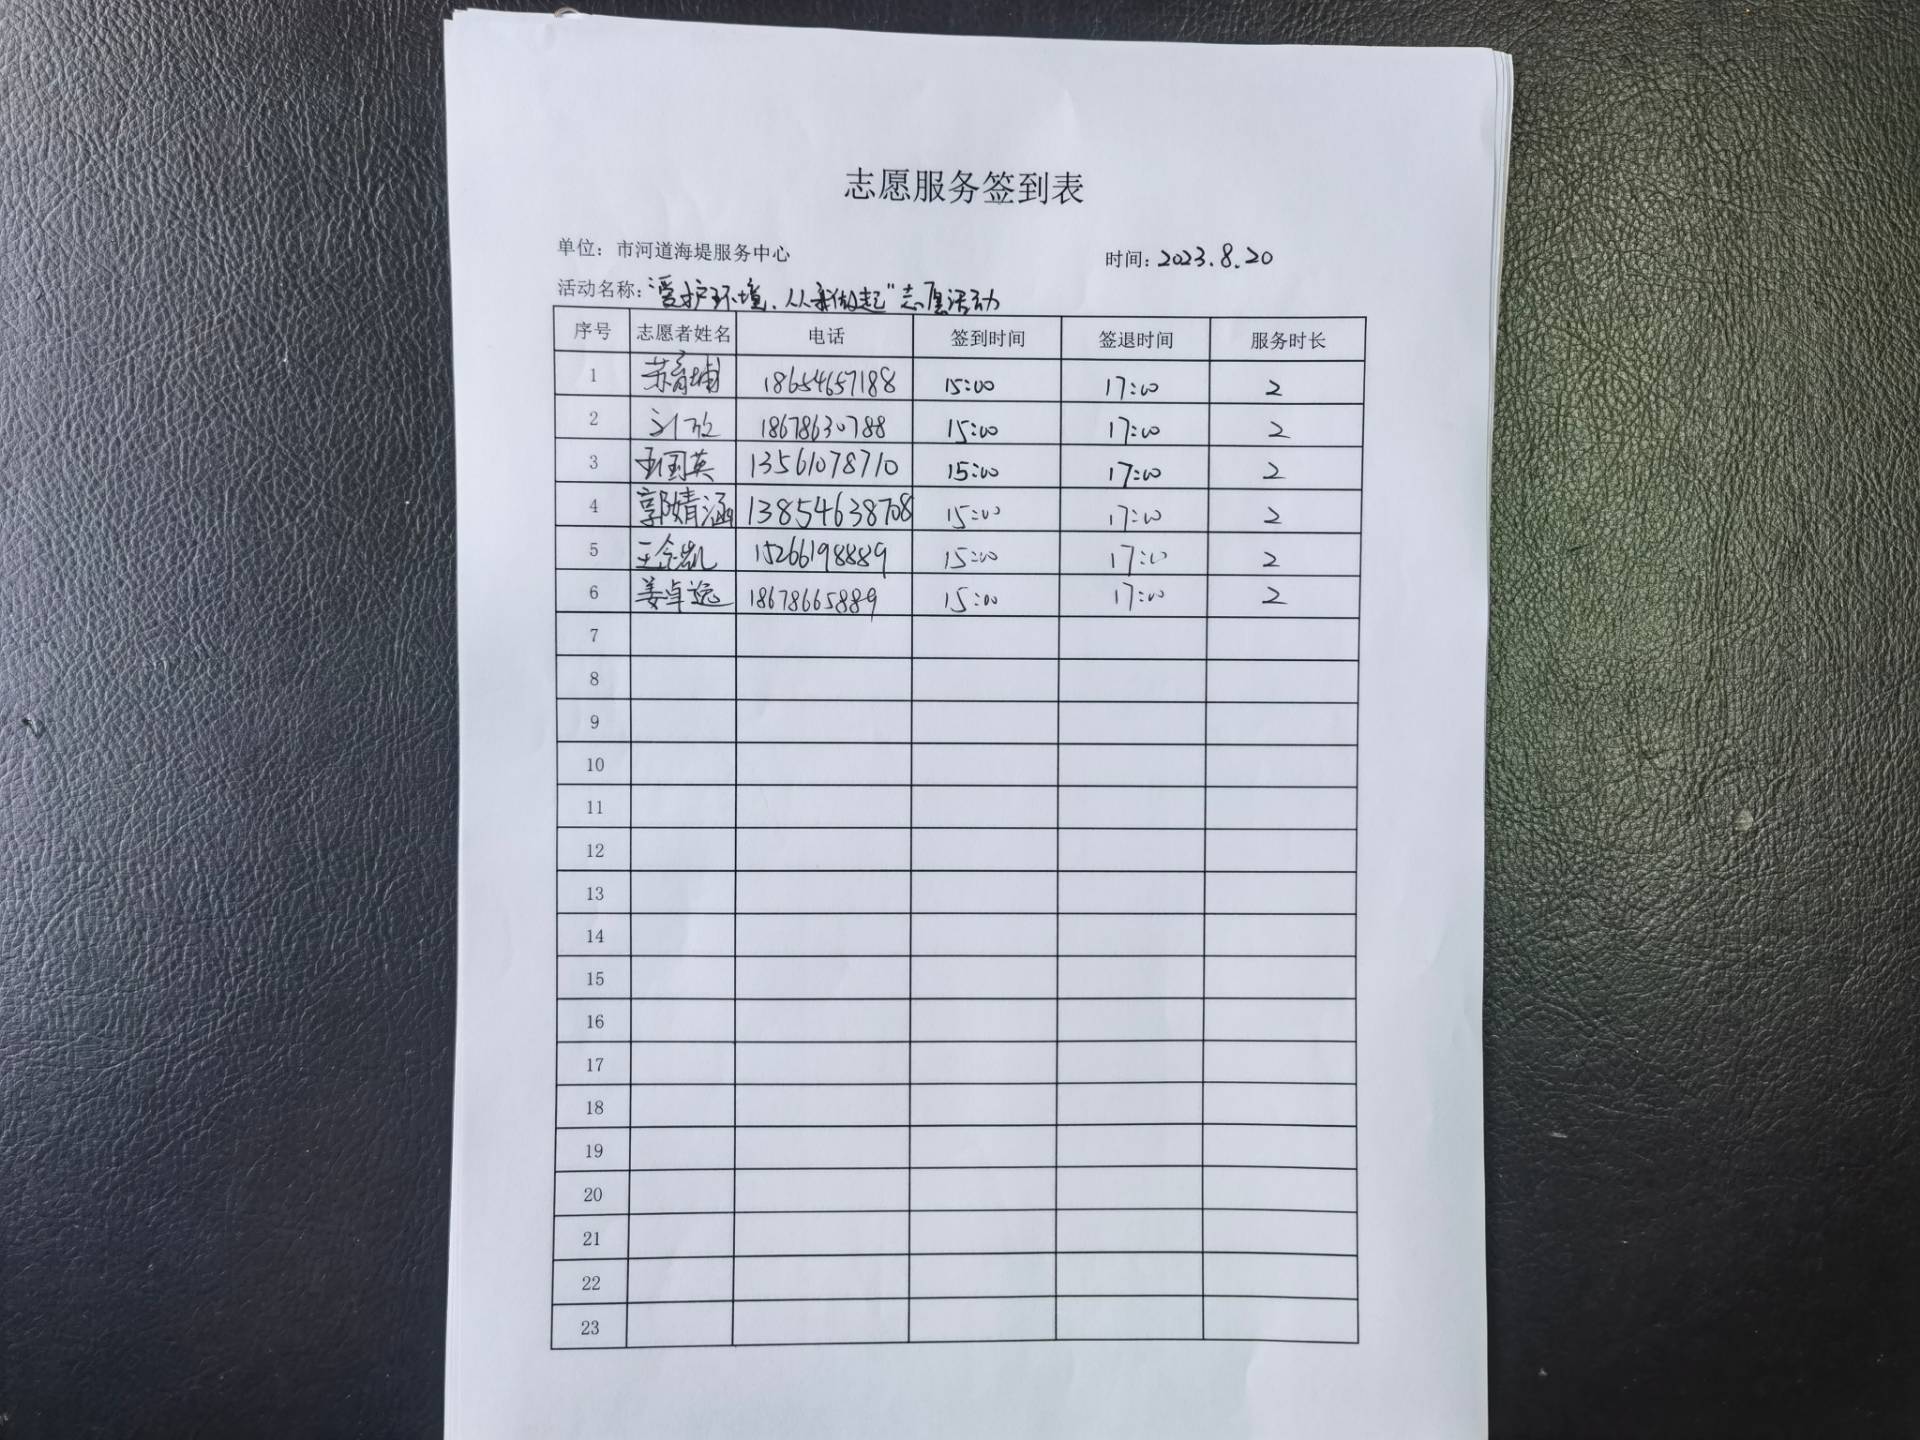 志愿服务签到表
单位：市河道海堤服务中心 时间：2023.8.20
活动名称："爱护环境、从我做起"志愿活动
序号 志愿者姓名 电话 签到时间 签退时间 服务时长
1 苏育埔 18654657188 15:00 17:00 2
2 18678630788 15:00 17:00 2
3 王国英 13561078710 15:00 17:00 2
4 郭婧涵 13854638708 15:00 17:00 2
5 15266198889 15:00 17:00 2
6 姜卓逸 18678665889 15:00 17:00 2
7
8
9
10
11
12
13
14
15
16
17
18
19
20
21
22
23